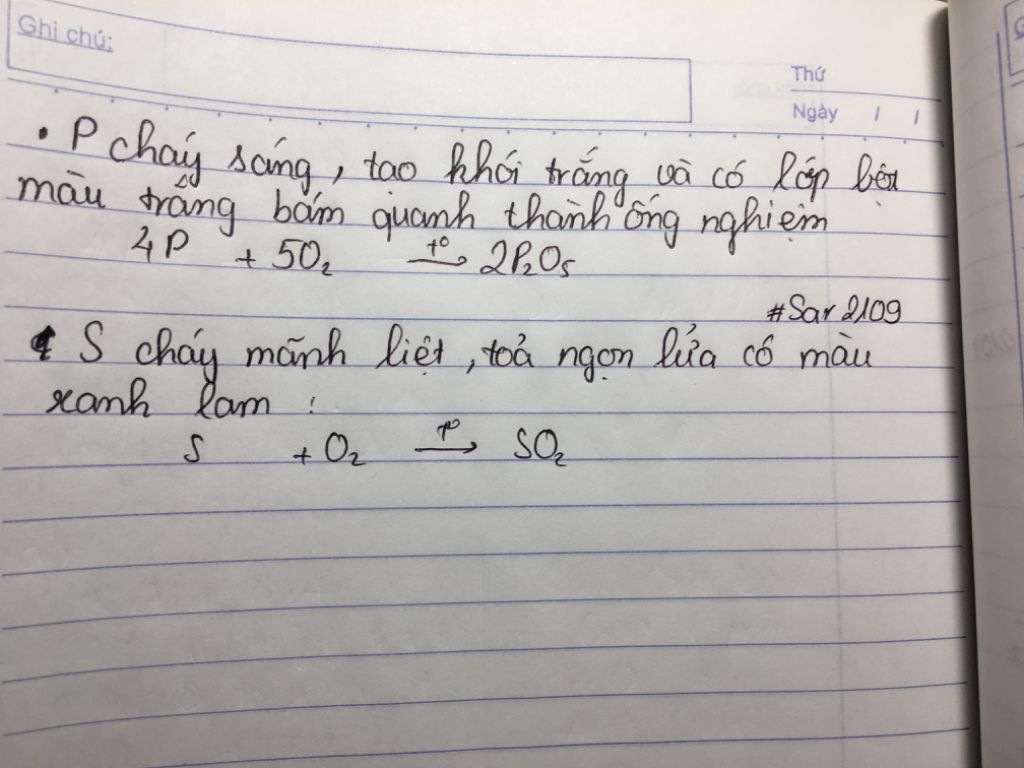 Ghi chú:
Thứ
Ngày / /
• P cháy sáng, tạo khói trắng và có lớp bột
màu trắng bám quanh thành ống nghiệm
4P + 5O₂ –t°→ 2P₂O₅
#Sar2109
S cháy mãnh liệt, toả ngọn lửa có màu
xanh lam :
S + O₂ –t°→ SO₂